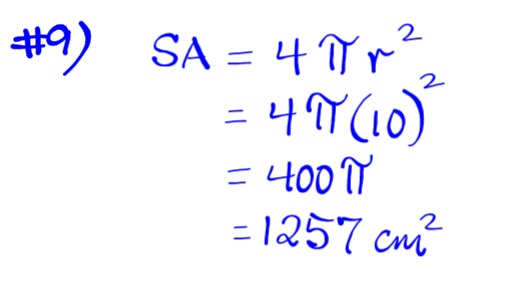 #9) SA = 4πr²
= 4π(10)²
= 400π
= 1257 cm²